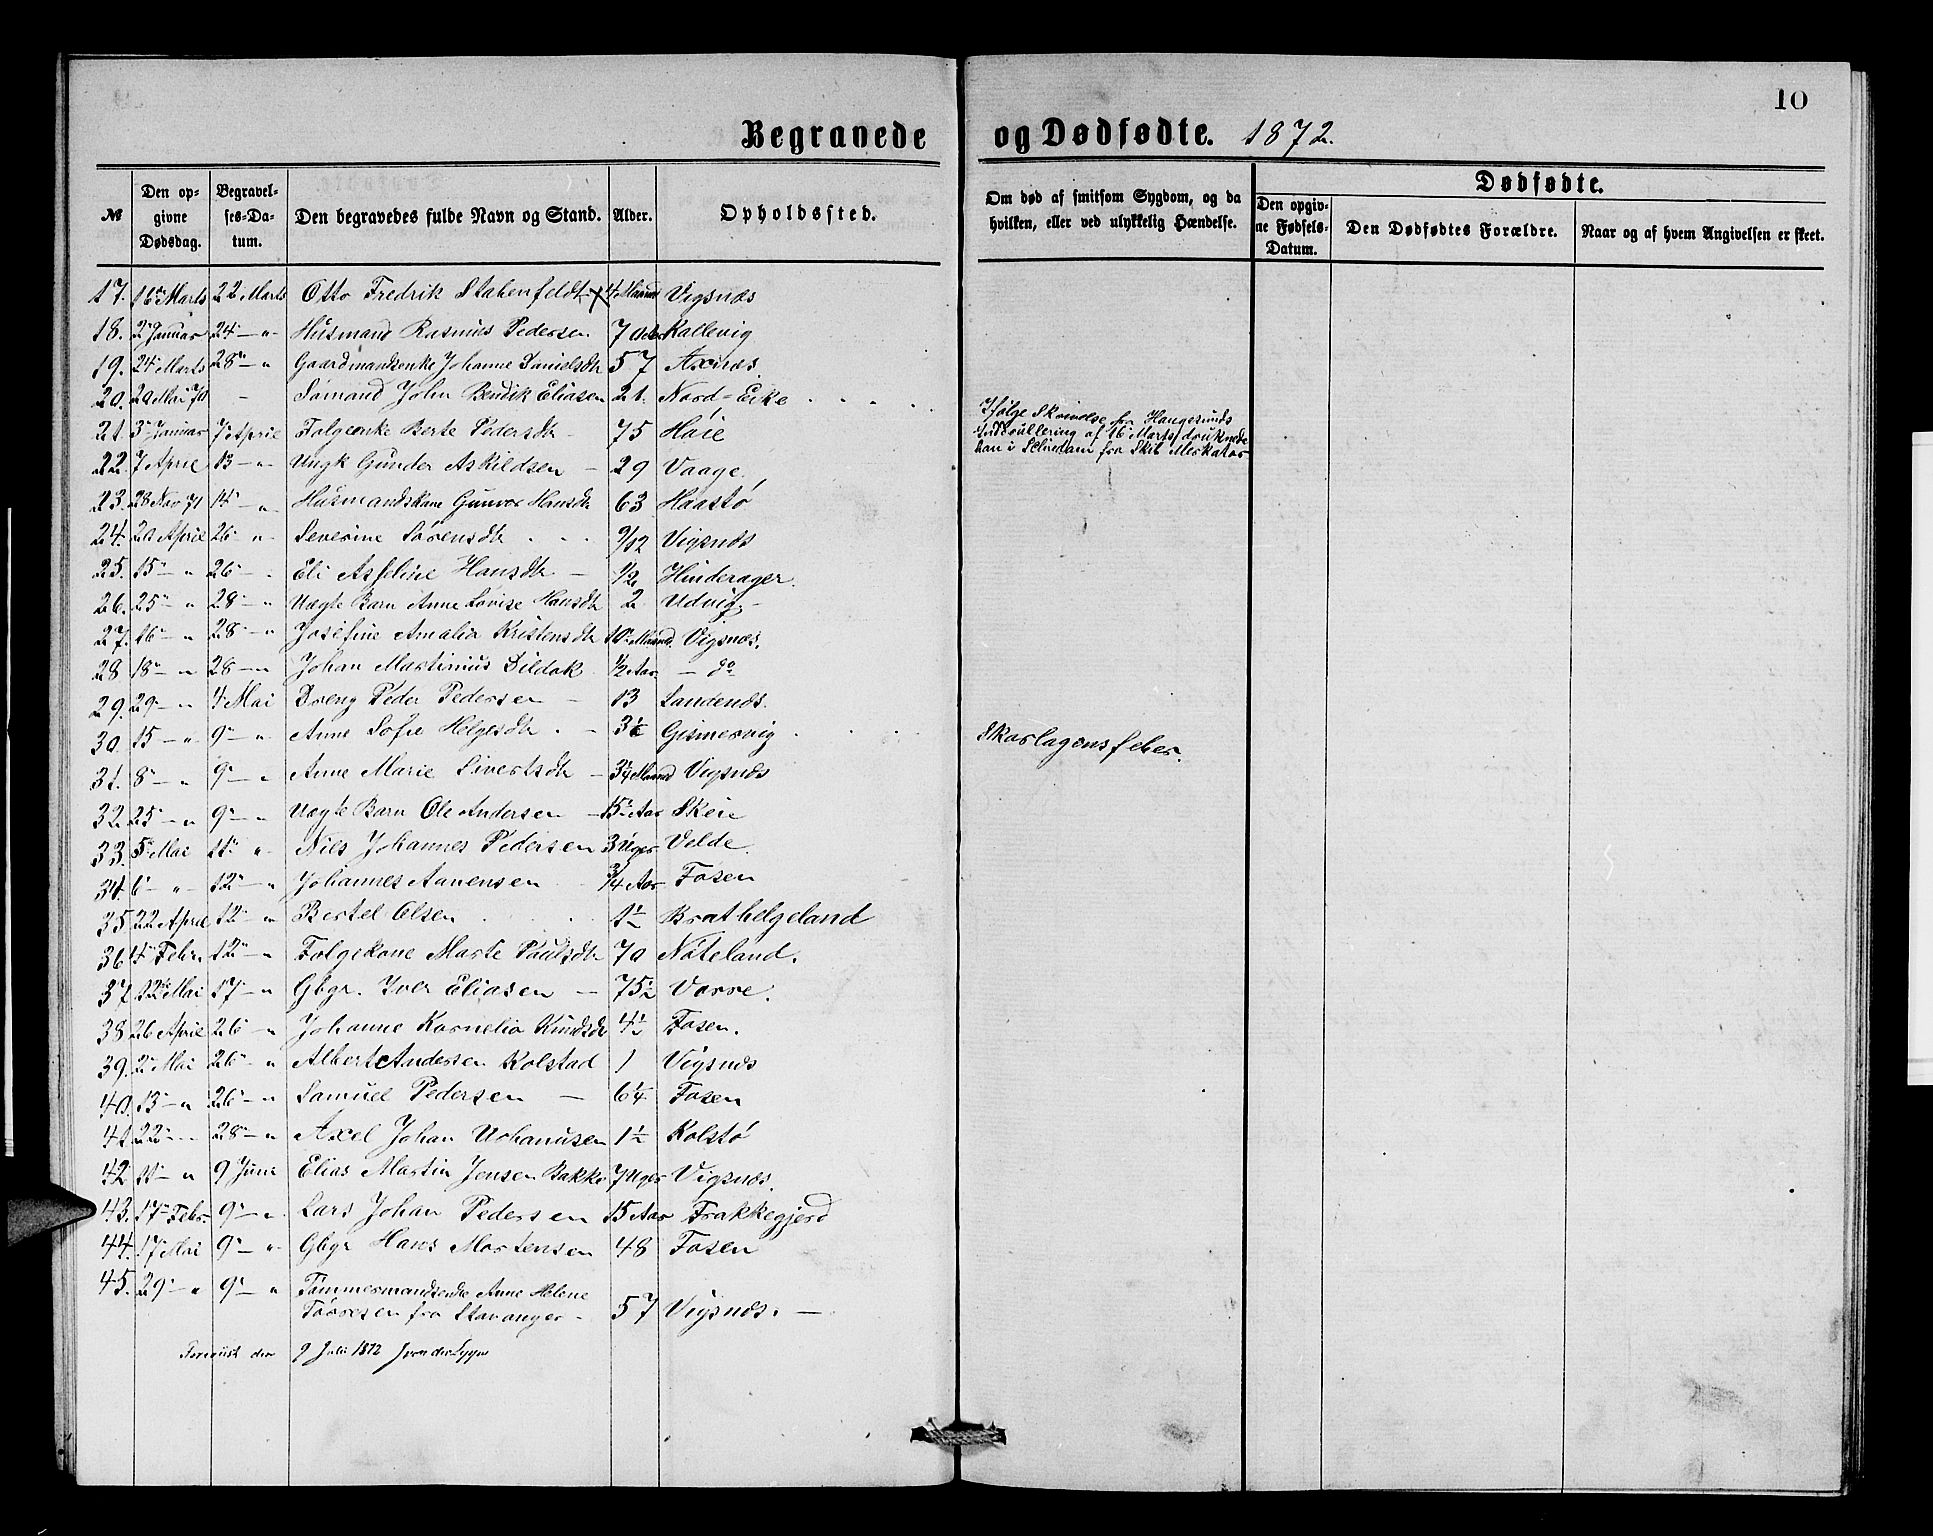 10
Begravede og Dødfødte. 1872.
№ Den opgivne Dødsdag. Begravelses-Datum. Den begravedes fulde Navn og Stand. Alder. Opholdssted. Om død af smitsom Sygdom, og da hvilken, eller ved ulykkelig Hændelse. Dødfødte. Den opgivne Fødsels-Datum. Den Dødfødtes Forældre. Naar og af hvem Angivelsen er skeet.
17. 16 Marts 22 Marts Otto Fredrik 4 Maaned Vigsnæs
18. 2 Januar 24 — " Husmand Rasmus Pedersen 70 Kallevig
19. 24 Marts 28 — " Gaardmandsenke Johanne Danielsdtr 57 Axnæs.
20. 20 Mai 70 - Sømand John Bendik Eliasen 21. Nord=Eike
Ifølge Skrivelse fra Haugesunds
Indrullering af 16 Marts druknede
han i Schiedam fra Skib Merkator
21. 3 Januar 7 April Folgeenke Berte Pedersdtr 75 Høie
22. 7 April 13 — " Ungk Gunder Askildsen — 29 Vaage.
23. 28 Nov 71 14 — " Husmandskone Gunvor Hansdtr 63 Haastø
24. 20 April 26 " Severine Sørensdtr 9/12 Vigsnæs
25. 15 — " 26 — . Eli Asseline Hansdtr — 1/2 Hinderager.
26. 25 — " 28 — " Uægte Barn Anne Lovise Hansdtr 2 Udvig —
27. 16 — " 28 — " Josefine Amalia Kristensdtr 10 Maaned. Vigsnæs.
28 18 — " 28 — " Johan Martinius Dildak 1/2 Aar — do
29. 29 — " 4 Mai Dreng Peder Pedersen — 13 Sandenæs.
30. 15 — " 9 — " Anne Sofie Helgesdtr . — 3½ Gismervig Skarlagensfeber.
31. 8 — " 9 — " Anne Marie Sivertsdtr — 3¼ Maaned Vigsnæs
32. 25 — " 9 — " Uægte Barn Ole Andersen — 15 Aar Skeie
33. 5 Mai 11 " Niels Johannes Pedersen 3 Uger Velde.
34. 6 — " 12 — " Johannes Aanensen 3/4 Aar Fosen
35 22 April 12 — " Bertel Olsen 1½ Brathelgeland
36 4 Febr. 12 — " Folgekone Marte Paulsdtr 70 Nøteland.
37 12 Mai 17 — " Gbgr. Iver Eliasen — 75½ Vorre.
38 26 April 26 — " Johanne Kornelia Knudsdtr 4½ Fosen.
39. 2 Mai 26 — " Albert Andersen Kolstad 1 Vigsnæs
40. 13 — " 26 — " Samuel Pedersen — 6¼ Fosen
41. 22 — 28 — " Axel Johan Urhanusen 1½ Kolstø
42 11 — " 9 Juni Elias Martin Jensen Bakke 7 Uger Vigsnæs.
43. 17 Febr. 9 — " Lars Johan Pedersen 15 Aar Frakkegjerd
44. 17 Mai 9 — " Gbgr Hans Mortensen 48 Fosen
45. 29 — " 9 — " Tømmermandsenke Anne Helene
Tørresen fra Stavanger — 57 Vigsnæs. —
den 9 Juli 1872